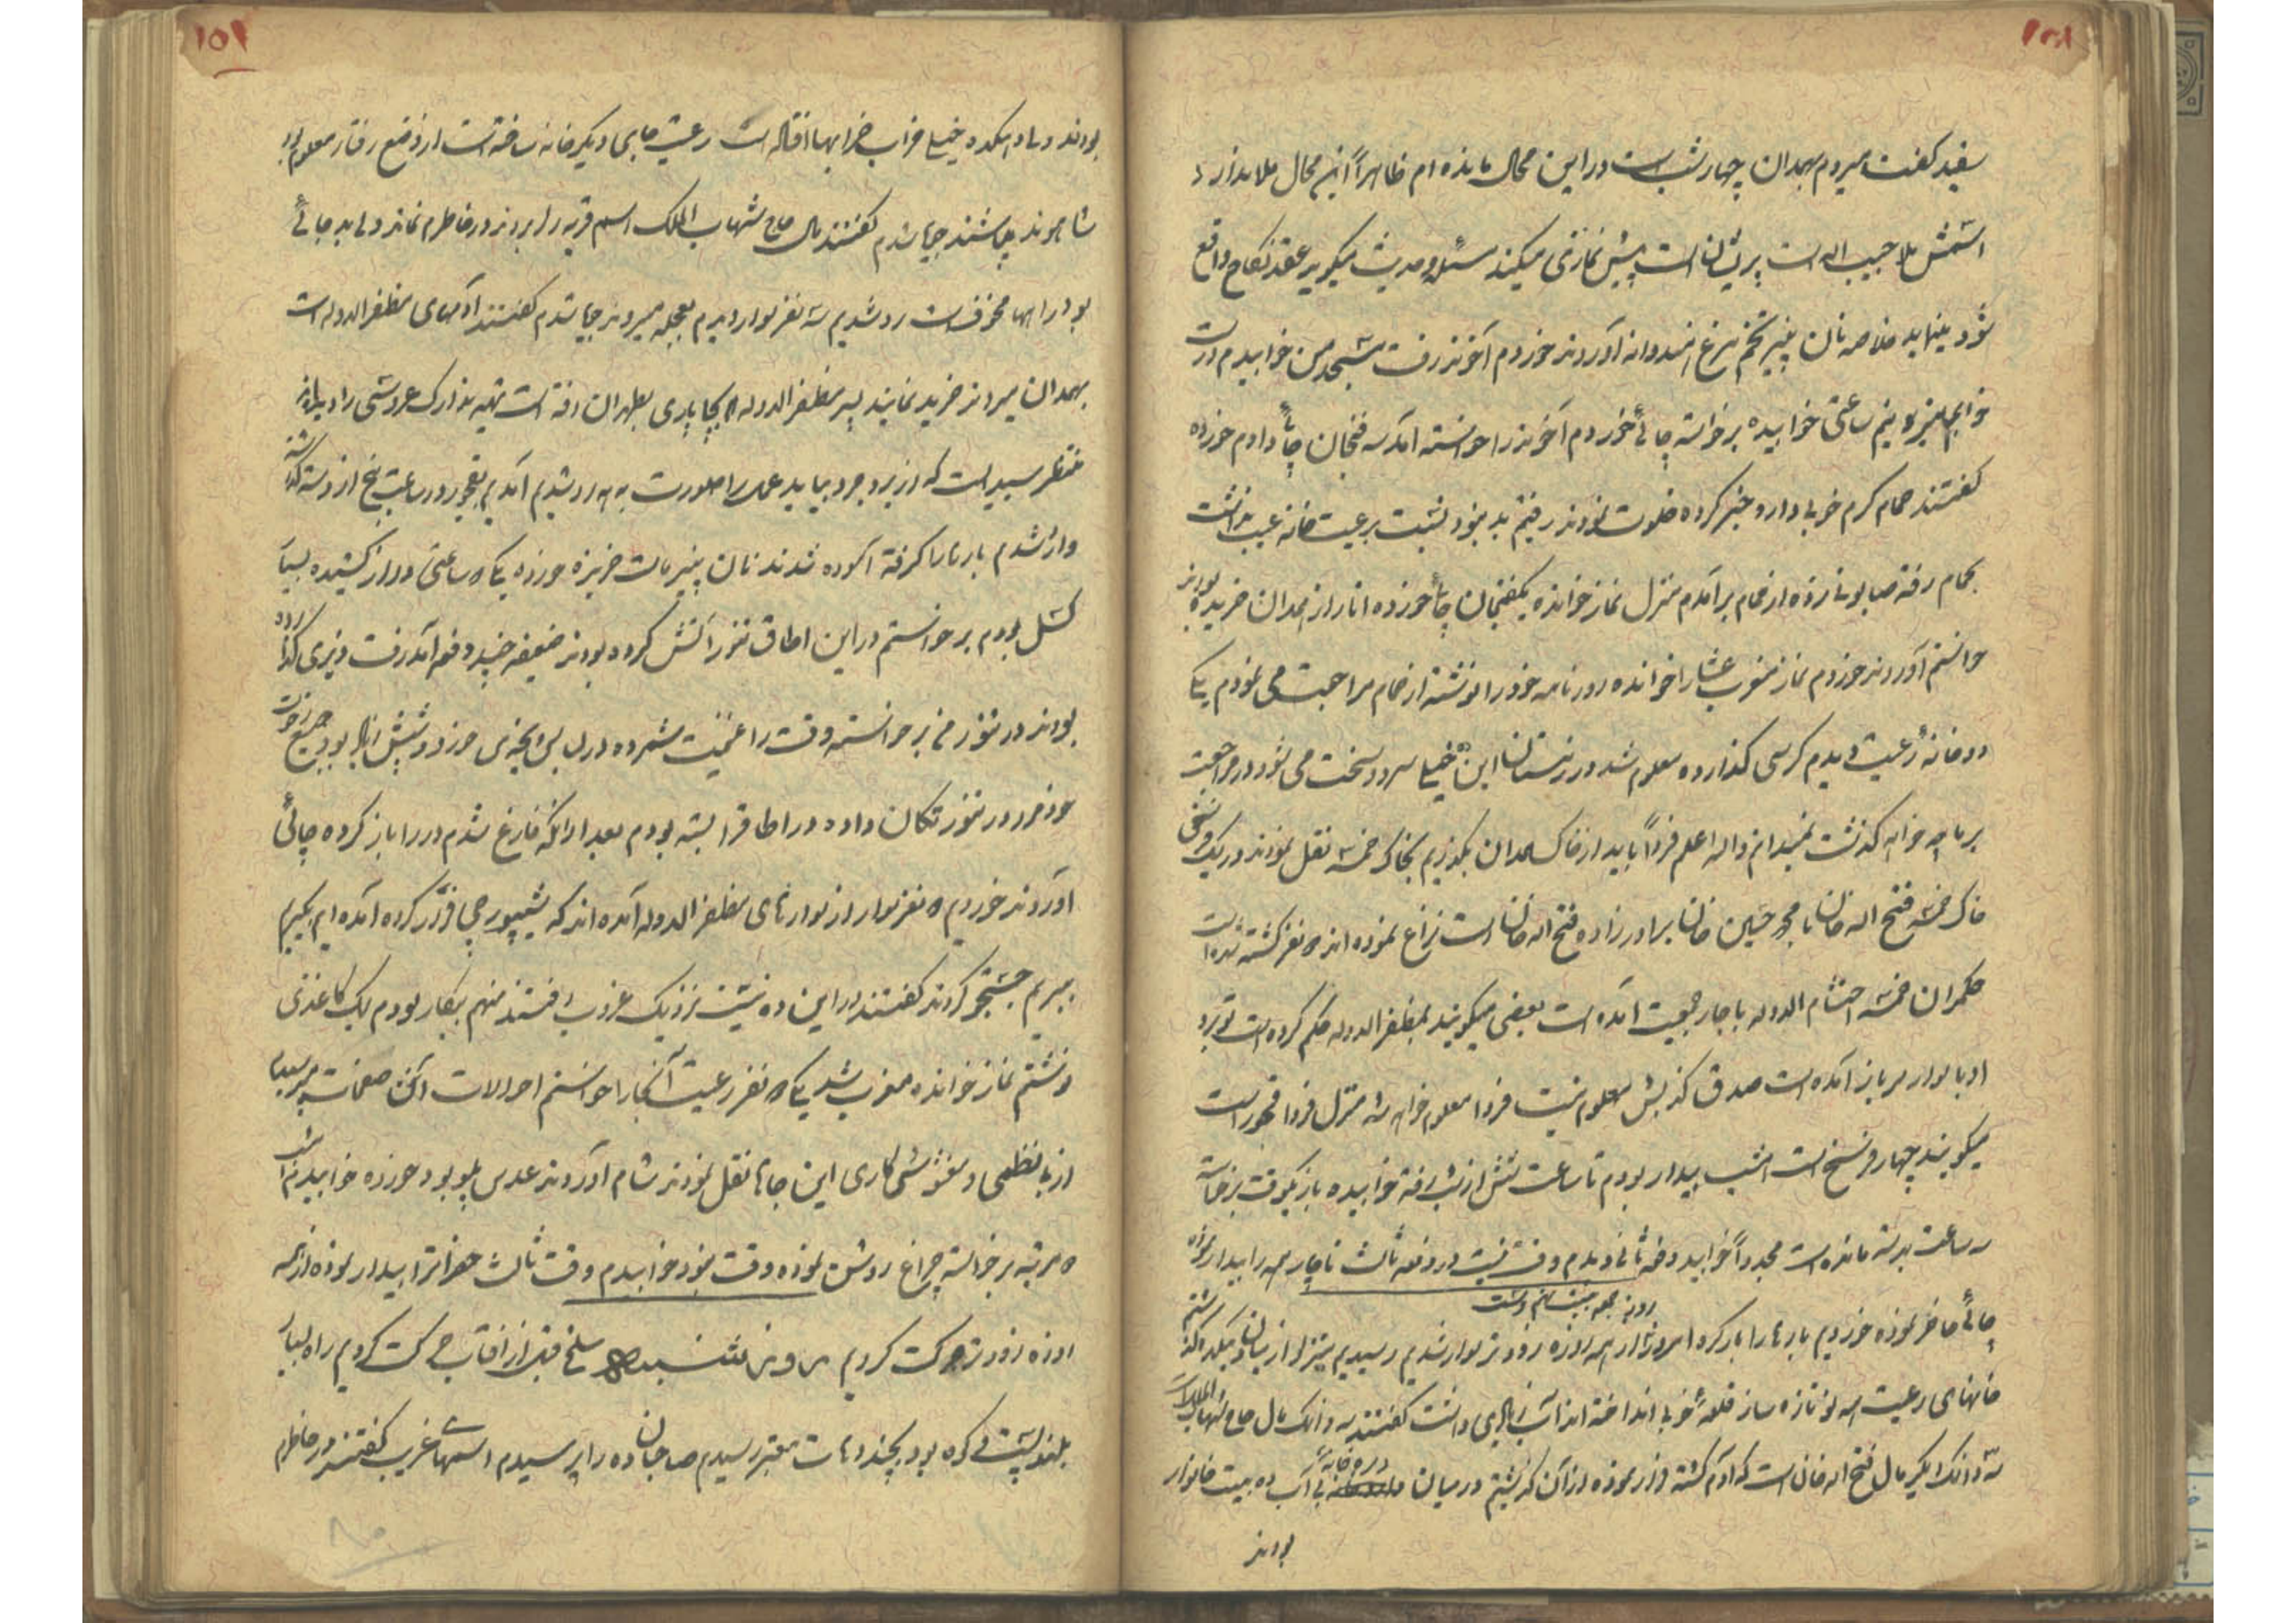 ۱۵۸
سفید گفت میروم همدان چهار شب است در این محال مانده ام ظاهراً این محال ملا ندارد
اسمش ملا حبیب اله است پریشان است پیش نمازی میکند مسئله و حدیث میگوید عقد نکاح واقع
شود مینماید خلاصه نان پنیر تخم مرغ هندوانه آوردند خوردم آخوند رفت مسجد من خوابیدم درست
خوابم نبرد نیم ساعتی خوابیده برخواسته چائی خوردم آخوند را خواسته آمد سه فنجان چائی دادم خورده
گفتند حمام گرم خوبی دارد خبر کرده خلوت نمودند رفتم بد نبود نسبت برعیت خانه عیب نداشت
بحمام رفته صابونی زده از حمام برآمدم منزل نماز خوانده یکفنجان چائی خورده انار از همدان خریده بودند
خواستم آوردند خوردم نماز مغرب عشا را خوانده روزنامه خود را نوشته از حمام مراجعت می نمودم یک
دو خانه رعیت دیدم کرسی گذارده معلوم شد در زمستان این ده خیلی سرد و سخت می شود در مراجعت
بر ما چه خواهد گذشت نمیدانم واله اعلم فردا باید از خاک همدان بگذریم بخاک خمسه نقل نمودند در یک فرسخی
خاک خمسه فتح اله خان با محمد حسین خان برادر زاده فتح اله خان است نزاع نموده اند ۵ نفر کشته شده است
حکمران خمسه احتشام الدوله با چار جمعیت آمده است بعضی میگویند بمظفرالدوله حکم کرده است تو برو
او با سوار سرباز آمده است صدق کذبش معلوم نیست فردا معلوم خواهد شد منزل فردا قجور است
میگویند چهار فرسخ است امشب بیدار بودم تا ساعت شش از شب رفته خوابیده باز یکوقت برخاسته
سه ساعت بدسته مانده است مجدداً خوابید دفعه ثانی دیدم وقت نیست در دفعه ثالث ناچار همه را بیدار نموده
روز جمعه بیست نهم
چائی حاضر نموده خوردیم بارها را بار کرده امروز از همه روزه زودتر سوار شدیم رسیدیم
خانهای رعیت همه نو تازه ساز قلعه خوبی انداخته اند آب زیادی داشت گفتند سه دانک مال حاج شهاب الملک است
سه دانک دیگر مال فتح اله خان است که آدم کشته فرار نموده از آن گذشتیم در میان رودخانه بی آب ده بیست خانوار
بودند
۱۵۹
بودند و ما دهکده خیلی خراب خرابها افتاده است رعیت جای دیگر خانه ساخته است از وضع رفتار معلوم بود
شاهوند چاشتند جویا شدم گفتند مال حاج شهاب الملک اسم قریه را بردند در خاطرم نماند ولی بد جائی
بود راهها مخوف است رد شدیم سه نفر سوار دیدم بعجله میروند جویا شدم گفتند آدمهای مظفرالدوله است
بهمدان میروند خرید نمایند پسر مظفرالدوله بچاپاری بطهران رفته است تهیه تدارک عروسی را دیده اند
منتظر سید است که از بروجرد بیاید عمل را صورت بدهد رد شدیم آمدیم بقجور در ساعت پنج از دسته گذشته
وارد شدم بارها را گرفته آسوده شدند نان پنیر ماست خربزه خورده یک ۵ ساعتی دراز کشیده بسیار
کسل بودم برخواستم در این اطاق تنور آتش کرده بودند ضعیفه چند دفعه آمد رفت پنیری گذارده
بودند در تنور من برخواسته وقت را غنیمت شمرده در لباس بیخه ی خود شپش زیاد بود جمیع رخوت
خود را در تنور تکان داده در اطاق را بسته بودم بعد از آنکه فارغ شدم در را باز کرده چائی
آوردند خوردم ۵ نفر سوار از سوارهای مظفرالدوله آمده اند که شیپورچی فرار کرده آمده ایم بگیریم
ببریم جستجو کردند گفتند در این ده نیست نزدیک غروب رفتند منهم بیکار بودم یک کاغذی
نوشتم نماز خوانده مغرب شد یک ۵ نفر رعیت آنجا را خواستم احوالات آن صفحات پرسیده
از بی نظمی و مغشوشی کاری این جاها نقل نمودند شام آوردند عدس پلو بود خورده خوابیدم امشب
۵ مرتبه برخواسته چراغ روشن نموده وقت نبود خوابیدم وقت ثالث حضرات را بیدار نموده از همه
روزه زودتر حرکت کردیم روز شنبه سلخ قبل از آفتاب حرکت کردیم راه بسیار
بلند پستی که کوه بود بچند دهات معتبر رسیدم صاحبان ده را پرسیدم اسمهای غریب گفتند در خاطرم